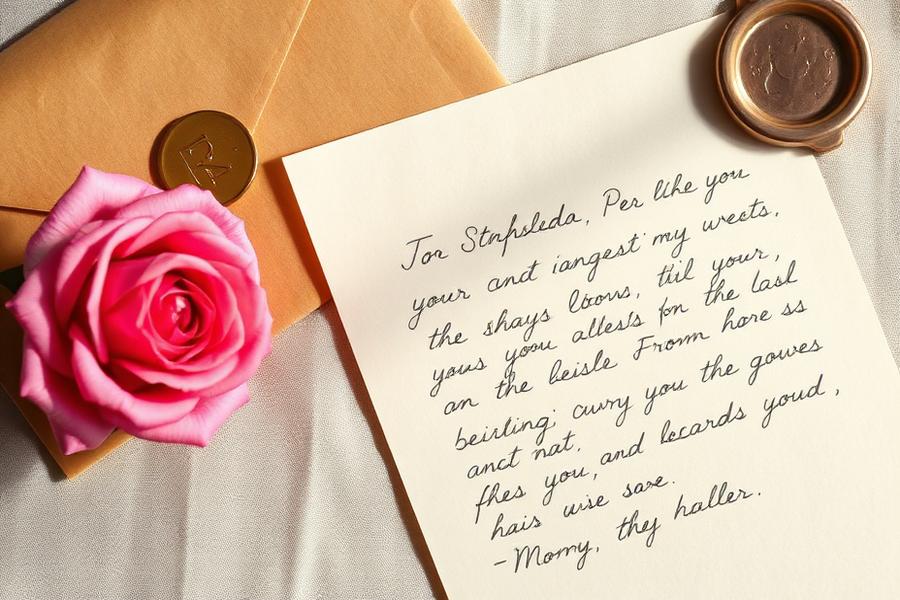 Jor Stnfsleda, Per like you
your and iangest my weets,
the shays loons, tiil your,
yous yoou alless fon the lasl
an the beisle Fromm hore ss
beirling; cuvry you the gowes
anct nat.
fhes you, and lecards youd,
hais wise sare.
-Momy, they haller.